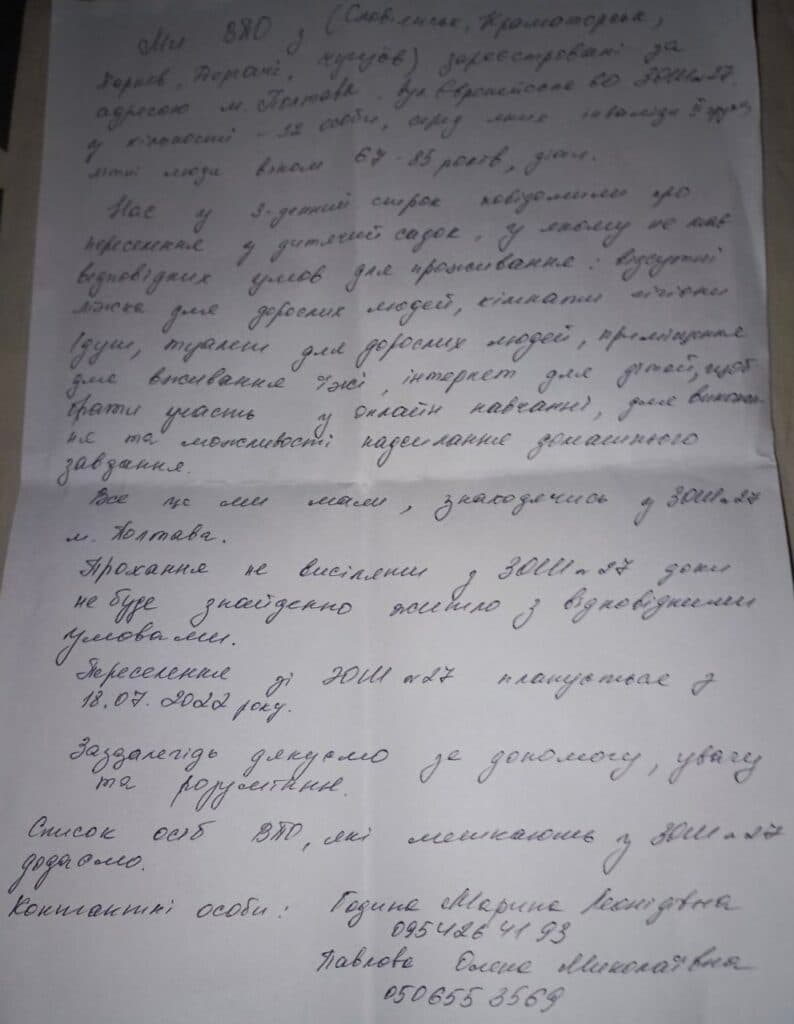 Ми ВПО з (Словʼянськ, Краматорськ,
Харків, Чугуїв) зареєстровані за
адресою м. Полтава вул Європейська 60 ЗОШ№27
у кількості - 32 особи, серед яких інваліди II групи,
літні люди віком 67-85 років, діти.
Нас у 3-денний строк повідомили про
переселення у дитячий садок, у якому не має
відповідних умов для проживання: відсутні
ліжка для дорослих людей, кімнати гігієни
(душ, туалет для дорослих людей, приміщення
для вживання їжі, інтернет для дітей, щоб
брати участь у онлайн навчанні, для виконан-
ня та можливості надсилання домашнього
завдання.
Все це ми мали, знаходячись у ЗОШ№27
м. Полтава.
Прохання не висіляти з ЗОШ№27 доки
не буде знайденно житло з відповідними
умовами.
Переселення зі ЗОШ №27 планується з
18.07.2022 року.
Заздалегідь дякуємо за допомогу, увагу
та розуміння.
Список осіб ВПО, які мешкають у ЗОШ№27
додаємо.
Контактні особи: Година Марина Леонідівна
095 426 41 93
Павлова Олена Миколаївна
050 655 3569